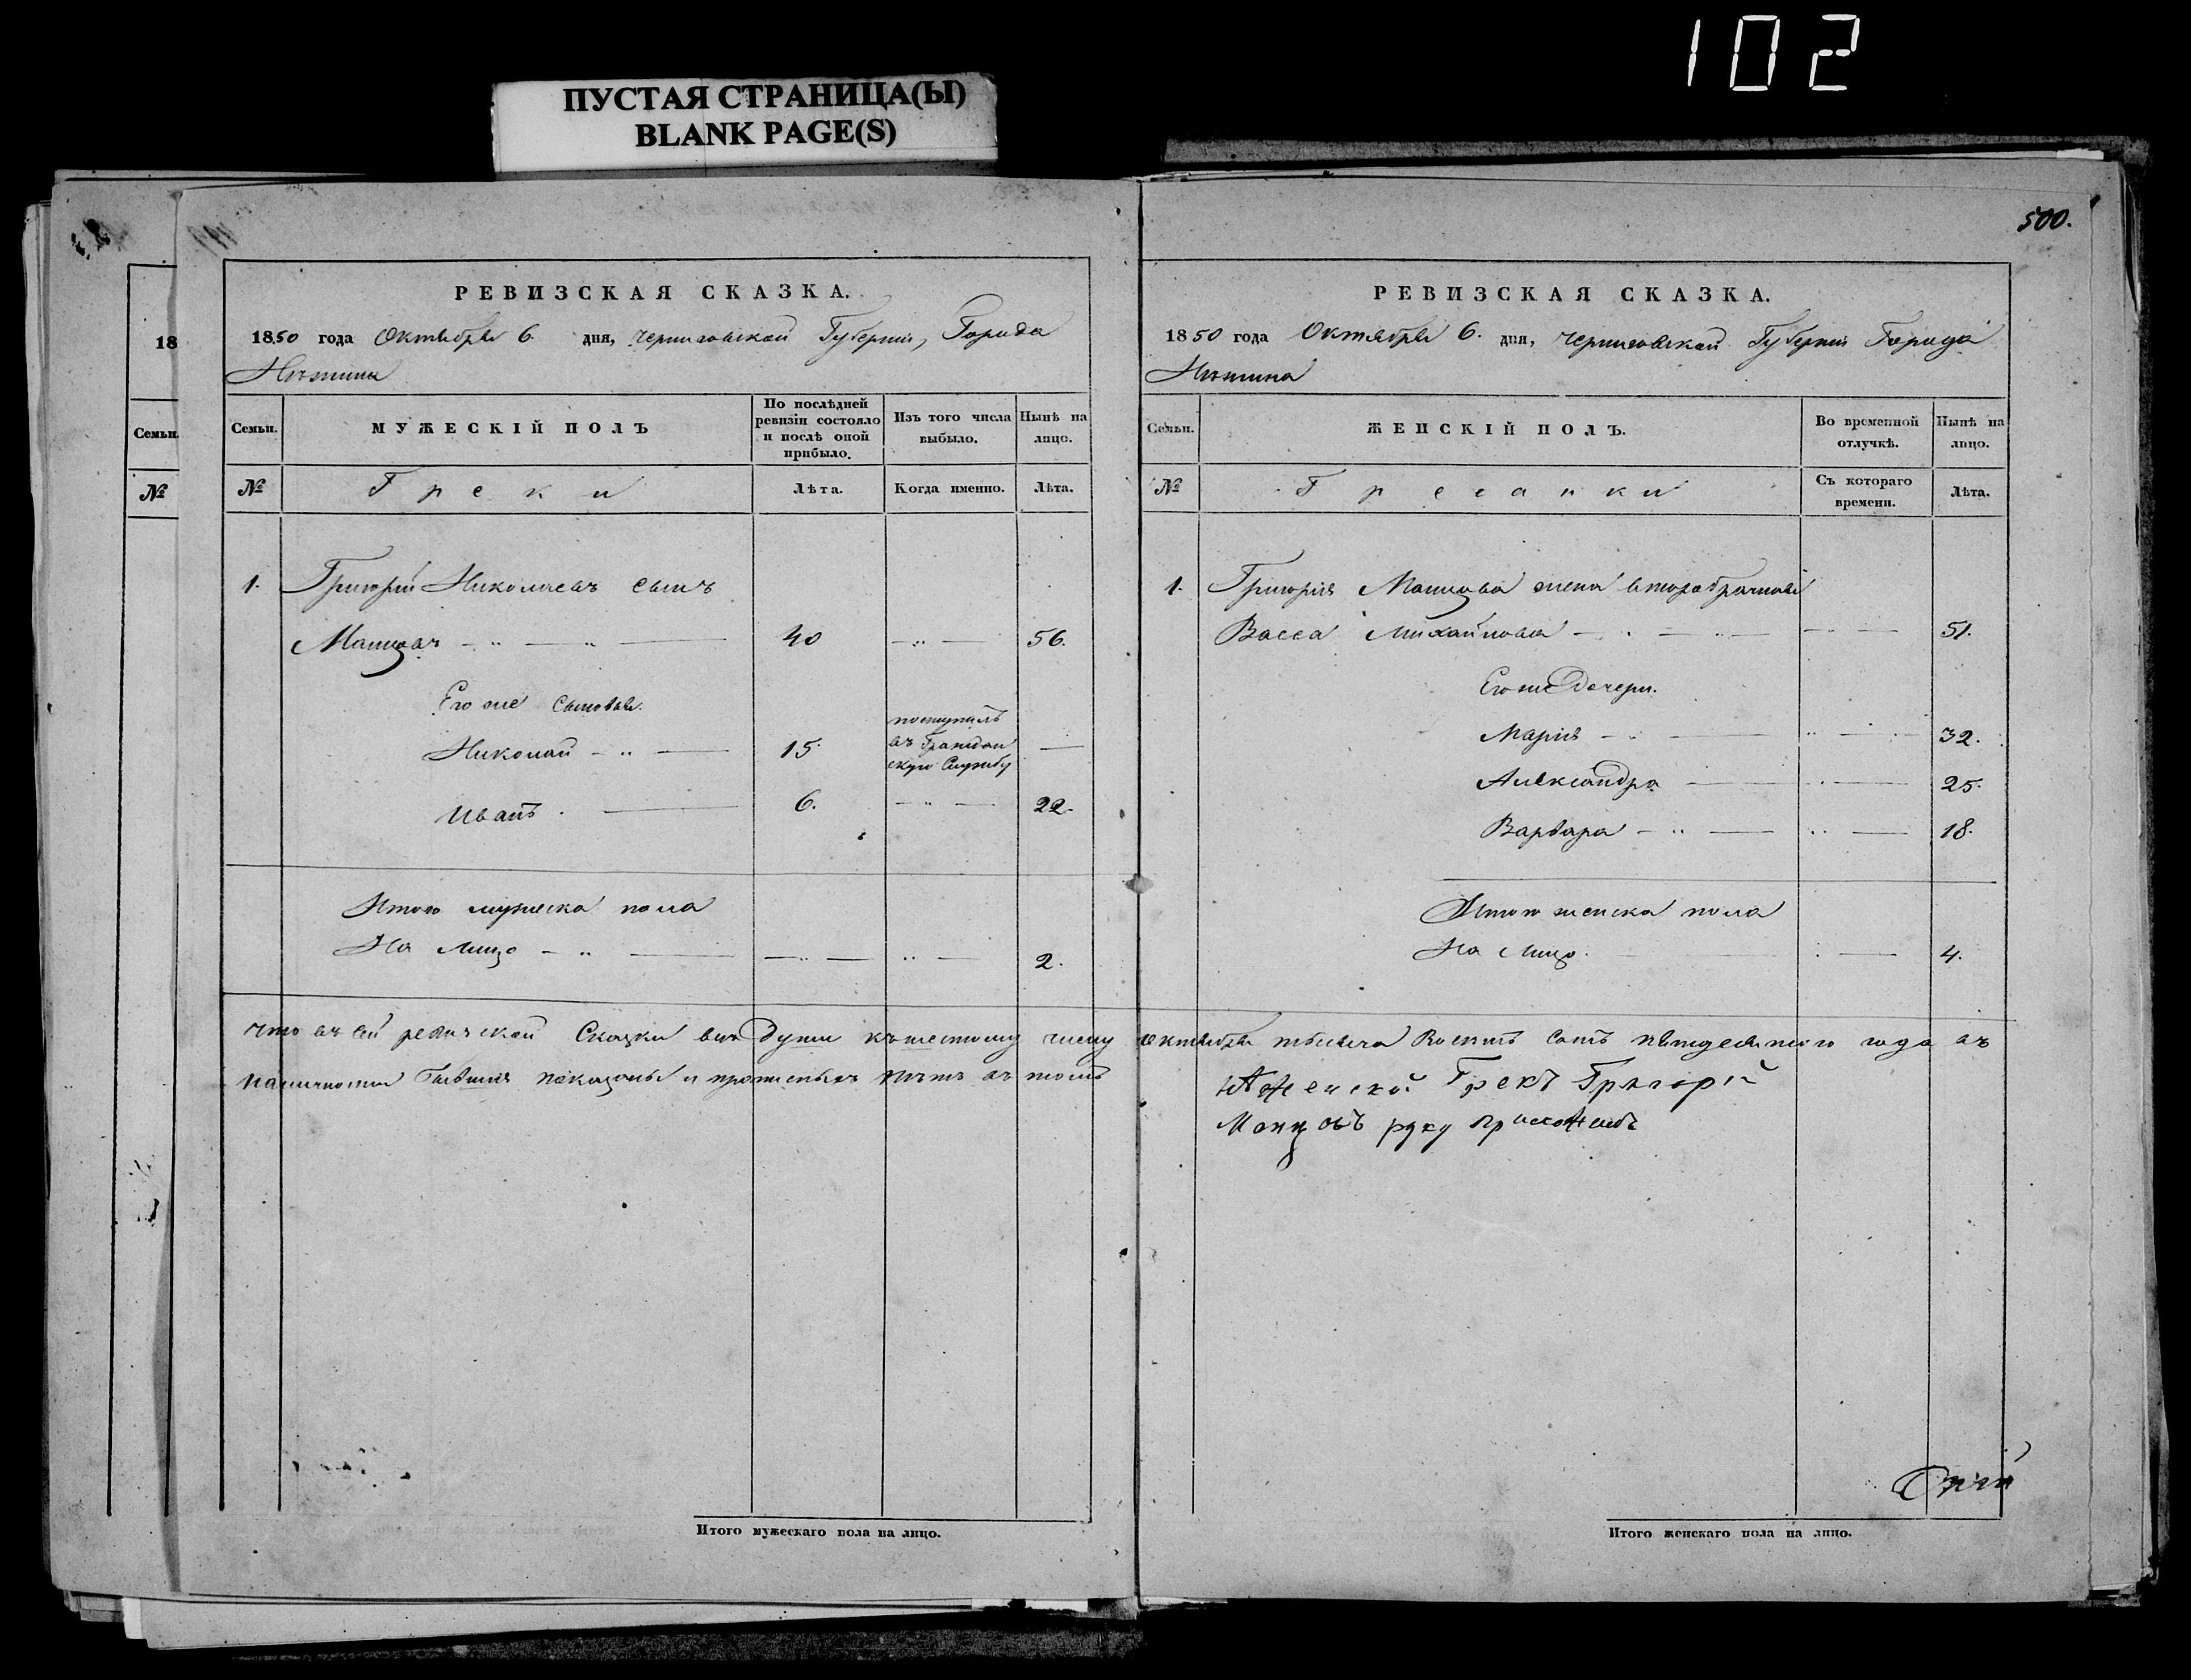 102
ПУСТАЯ СТРАНИЦА(Ы)
BLANK PAGE(S)
18
Семьи.
№
РЕВИЗСКАЯ СКАЗКА.
1850 года Октября 6. дня, Черниговской Губерніи, Города
Нѣжина
Семьи.
МУЖЕСКІЙ ПОЛЪ
По послѣдней
ревизіи состояло
и послѣ оной
прибыло.
Изъ того числа
выбыло.
Нынѣ на
лицо.
№
Греки
Лѣта.
Когда именно.
Лѣта.
1. Григорій Николаевъ сынъ
Манцовъ 40 56.
Его же сыновья.
Николай 15. поступилъ
въ Граждан
скую Службу
Иванъ 6. 22.
Итого мужеска пола
На лицо 2.
500.
РЕВИЗСКАЯ СКАЗКА.
1850 года Октября 6. дня, Черниговской Губерніи Города
Нѣжина
Семьи.
ЖЕНСКІЙ ПОЛЪ.
Во временной
отлучкѣ.
Нынѣ на
лицо.
№
Гречанки
Съ котораго
времени.
Лѣта.
1. Григорія Манцова жена второбрачная
Васса Михайлова 51.
Его же Дочери.
Марія 32.
Александра 25.
Варвара 18.
Итого женска пола
На лицо 4.
что въ сей ревизской Сказки всѣ души къ шестому числу октября тысяча восемь сотъ пятидесятого года въ
наличности бывшія показаны и прописныхъ нѣтъ въ томъ
Нѣженской Грекъ Григорій
Манцовъ руку приложилъ
Итого мужескаго пола на лицо.
Итого женскаго пола на лицо.